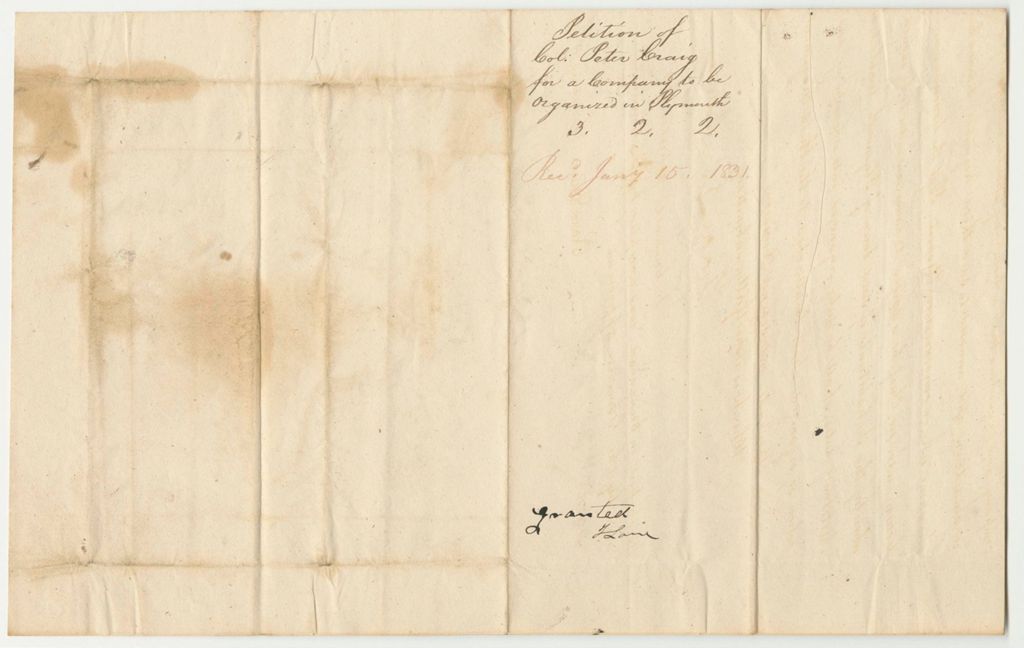 Petition of
Col: Peter Craig
for a Company to be
organized in Plymouth
3. 2. 2.
Recd. Jany 15. 1831.
granted